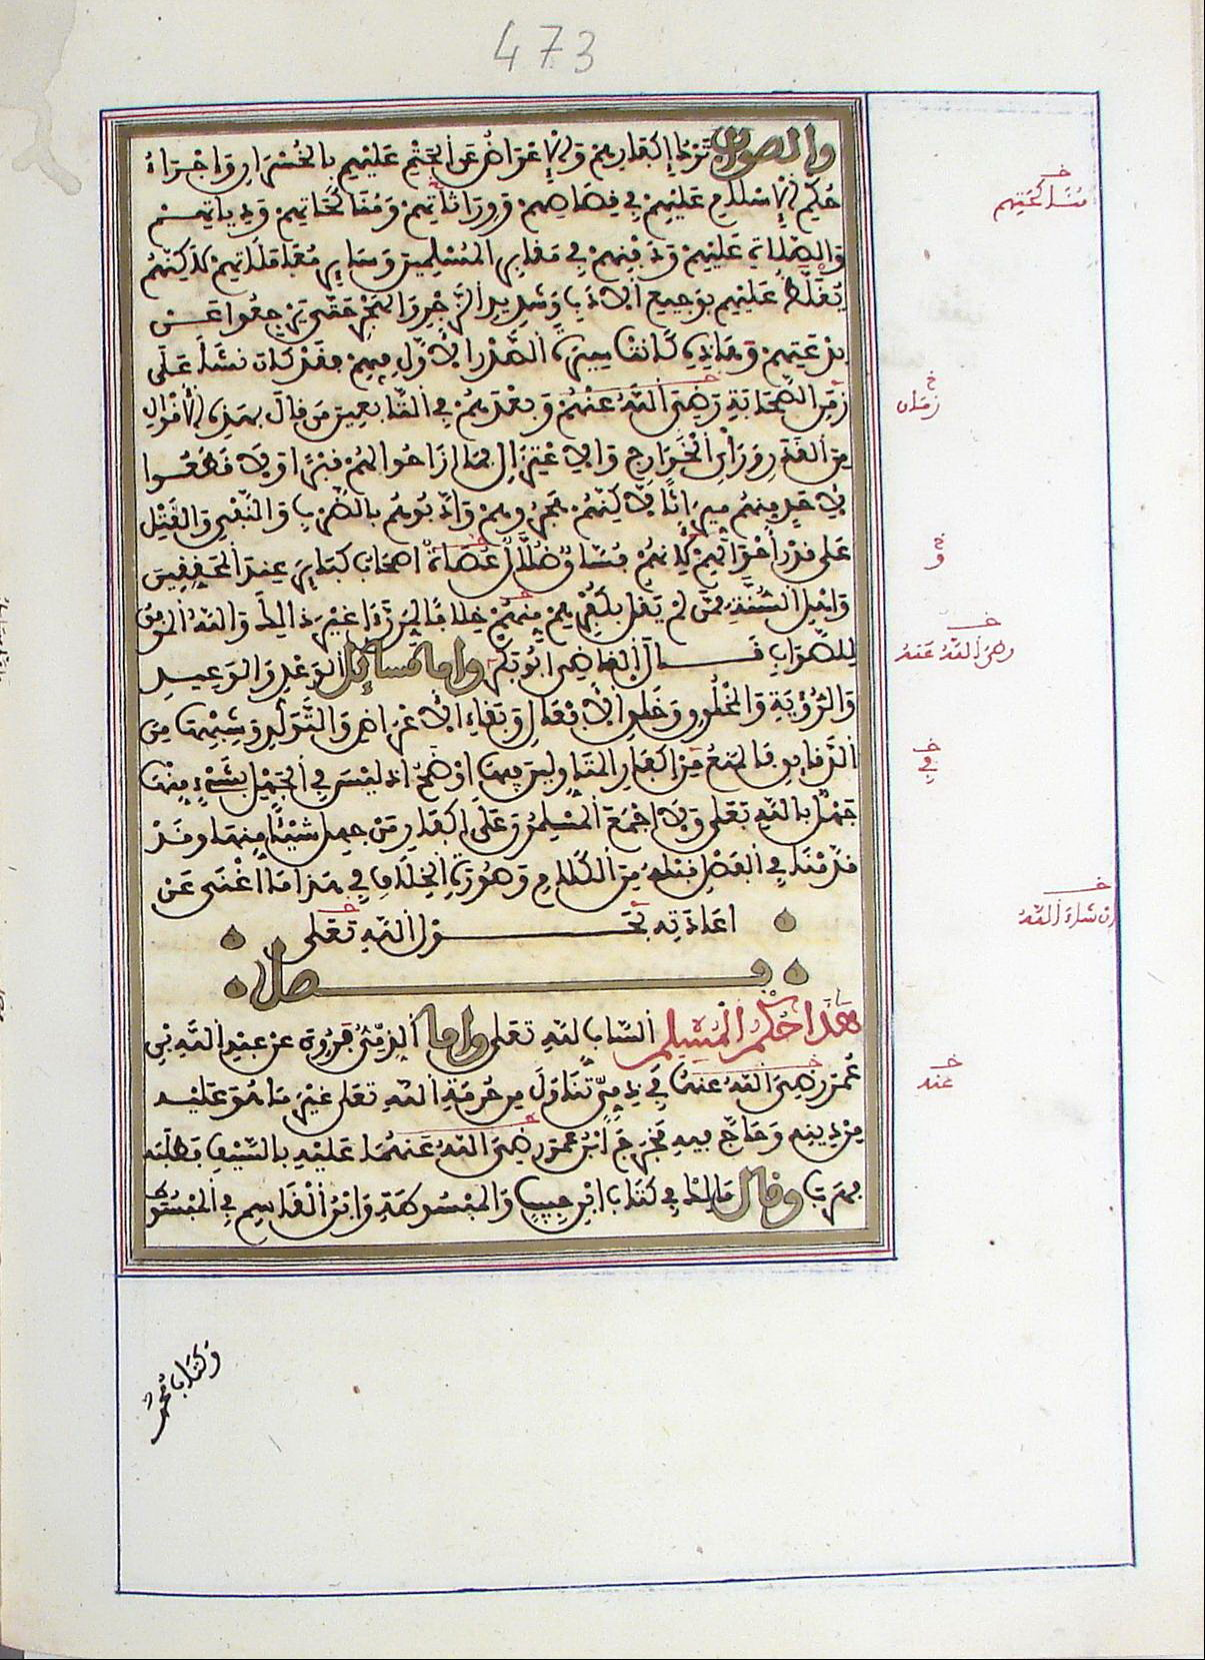 473
والصواب تَرْكُ إكفارهم وَالإعْرَاضُ عَنِ الحَتْمِ عَلَيْهِم بِالخُسْرَانِ وَإجْرَاءُ
حُكْمِ الإسْلامِ عَلَيْهِمْ فِي قِصَاصِهِمْ وَوِرَاثَاتِهِمْ وَمُنَاكَحَاتِهِمْ وَدِيَاتِهِمْ
وَالصَّلاةِ عَلَيْهِمْ وَدَفْنِهِمْ فِي مَقَابِرِ المُسْلِمِينَ وَسَائِرِ مُعَامَلاتِهِمْ لَكِنَّهُمْ
يُغَلَّظُ عَلَيْهِم بِوَجِيعِ الأدَبِ وَشَدِيدِ الزَّجْرِ وَالهَجْرِ حَتَّى يَرْجِعُوا عَنْ
بِدْعَتِهِمْ وَهَذِهِ كَانَتْ سِيرَةَ الصَّدْرِ الأوَّلِ فِيهِمْ فَقَدْ كَانَ نَشَأَ عَلَى
زَمَنِ الصَّحَابَةِ رَضِيَ اللَّهُ عَنْهُمْ وَبَعْدَهُمْ فِي التَّابِعِينَ مَن قَالَ بِهَذِهِ الأقْوَالِ
مِنَ القَدَرِ وَرَأْيِ الخَوَارِجِ وَالاعْتِزَالِ فَمَا أزَاحُوا لَهُمْ قَبْرًا وَلا قَطَعُوا
لأحَدٍ مِنْهُمْ مِيرَاثًا لَكِنَّهُمْ هَجَرُوهُمْ وَأدَّبُوهُم بِالضَّرْبِ وَالنَّفْيِ وَالقَتْلِ
عَلَى قَدْرِ أحْوَالِهِمْ لأنَّهُمْ فُسَّاقٌ ضُلَّالٌ عُصَاةٌ أصْحَابُ كَبَائِرَ عِنْدَ المُحَقِّقِينَ
وَأهْلِ السُّنَّةِ مِمَّنْ لَمْ يَقُلْ بِكُفْرِهِمْ مِنْهُمْ خِلافًا لِمَن رَأَى غَيْرَ ذَلِكَ وَاللَّهُ المُوَفِّقُ
لِلصَّوَابِ قَـــالَ القَاضِي أبُو بَكْرٍ وأما مسائل الوَعْدِ وَالوَعِيدِ
وَالرُّؤْيَةِ وَالمَخْلُوقِ وَخَلْقِ الأفْعَالِ وَبَقَاءِ الأعْرَاضِ وَالتَّوَلُّدِ وَشِبْهِهَا مِنَ
الدَّقَائِقِ فَالمَنْعُ مِنْ إكْفَارِ المُتَأَوِّلِينَ فِيهَا أوْضَحُ إذْ لَيْسَ فِي الجَهْلِ بِشَيْءٍ مِنْهَا
جَهْلٌ بِاللَّهِ تَعَلَى وَلا أجْمَعَ المُسْلِمُونَ عَلَى إكْفَارِ مَنْ جَهِلَ شَيْئًا مِنْهَا وَقَدْ
قَدَّمْنَا فِي الفَصْلِ قَبْلَهُ مِنَ الكَلامِ وَصُورَةِ الخِلافِ فِي هَذَا مَا أغْنَى عَنْ
إعَادَتِهِ بِحَـــوْلِ اللَّهِ تَعَلَى
فـــصل
هَذَا حُكْمُ المُسْلِمِ السَّابِّ لِلَّهِ تَعَلَى وأما الذِّمِّيُّ فَرُوِيَ عَنْ عَبْدِ اللَّهِ بْنِ
عُمَرَ رَضِيَ اللَّهُ عَنْهُمَا فِي ذِمِّيٍّ تَنَاوَلَ مِنْ حُرْمَةِ اللَّهِ تَعَلَى غَيْرَ مَا هُوَ عَلَيْهِ
مِنْ دِينِهِ وَحَاجَّ فِيهِ فَخَرَجَ ابْنُ عُمَرَ رَضِيَ اللَّهُ عَنْهُمَا عَلَيْهِ بِالسَّيْفِ فَطَلَبَهُ
فَهَرَبَ وقال مَالِكٌ فِي كِتَابِ ابْنِ حَبِيبٍ وَالمَبْسُوطَةِ وَابْنُ القَاسِمِ فِي المَبْسُوطِ
وَكِتَابِ مُحَمَّدٍ
خ
مُنَاكَحَتِهِم
خ
زمان
خ
و
خ
رضي اللَّهُ عَنْهُ
خ
في
خ
إن شاء اللَّهُ
خ
عنه